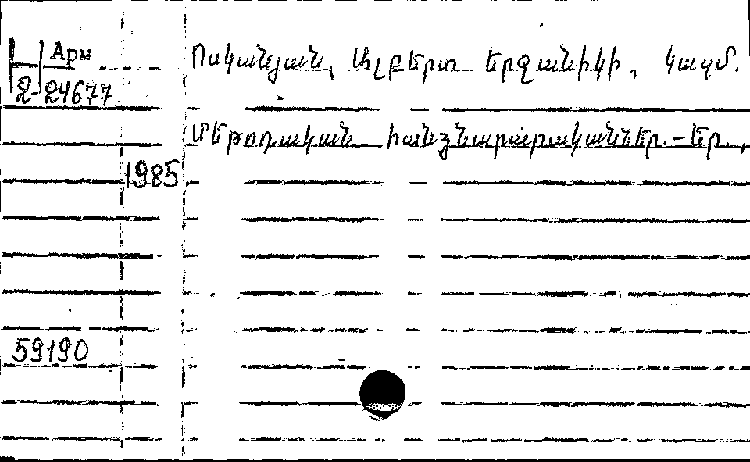 Арм
2-24677
Ոսկանյան, Ալբերտ Երջանիկի, կազմ.
Մեթոդական հանձնարարականներ.-Եր.,
1985
59190